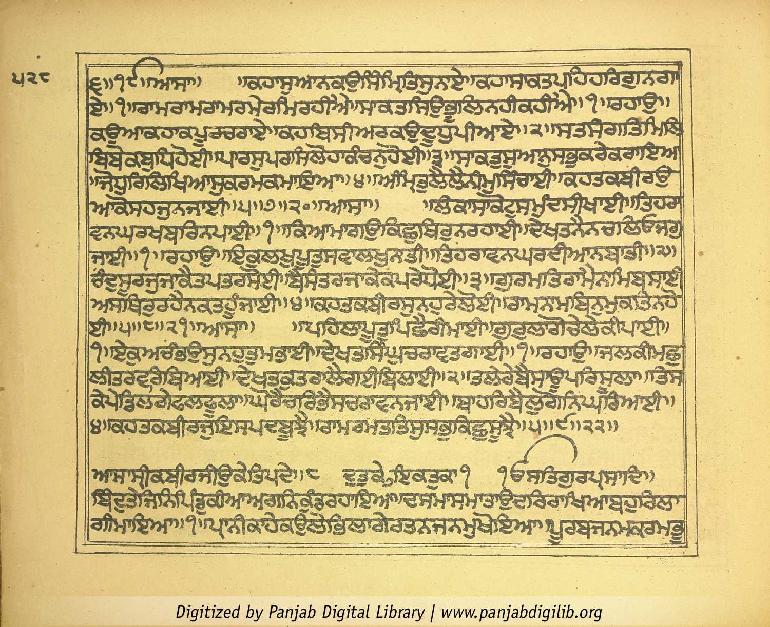 ੫੨੮
੬॥੧੮॥ਆਸਾ॥ ਕਹਾਸੁਆਨਕਉਸਿਮ੍ਰਿਤਿਸੁਨਾਏ॥ਕਹਾਸਾਕਤਪਹਿਹਰਿਗੁਨਗਾ
ਏ॥੧॥ਰਾਮਰਾਮਰਾਮਰਮੇਰਮਿਰਹੀਐ॥ਸਾਕਤਸਿਉਭੂਲਿਨਹੀਕਹੀਐ॥੧॥ਰਹਾਉ॥
ਕਊਆਕਹਾਕਪੂਰਚਰਾਏ॥ਕਹਬਿਸੀਅਰਕਉਦੂਧੁਪੀਆਏ॥੨॥ਸਤਸੰਗਤਿਮਿਲਿ
ਬਿਬੇਕਬੁਧਿਹੋਈ॥ਪਾਰਸੁਪਰਸਿਲੋਹਾਕੰਚਨੁਹੋਈ॥੩॥ਸਾਕਤੁਸੁਆਨੁਸਭੁਕਰੇਕਰਾਇਆ
॥ਜੋਧੁਰਿਲਿਖਿਆਸੁਕਰਮਕਮਾਇਆ॥੪॥ਅੰਮ੍ਰਿਤੁਲੈਲੈਨੀਮੁਸਿੰਚਾਈ॥ਕਹਤਕਬੀਰਉ
ਆਕੋਸਹਜੁਨਜਾਈ॥੫॥੭॥੨੦॥ਆਸਾ॥ ਲੰਕਾਸਾਕੋਟੁਸਮੁੰਦਸੀਖਾਈ॥ਤਿਹਰਾ
ਵਨਘਰਖਬਰਿਨਪਾਈ॥੧॥ਕਿਆਮਾਗਉਕਿਛੁਥਿਰੁਨਰਹਾਈ॥ਦੇਖਤਨੈਨਚਲਿਓਜਗੁ
ਜਾਈ॥੧॥ਰਹਾਉ॥ਇਕੁਲਖੁਪੂਤਸਵਾਲਖੁਨਾਤੀ॥ਤਿਹਰਾਵਨਘਰਦੀਆਨਬਾਤੀ॥੨॥
ਚੰਦੁਸੂਰਜੁਜਾਕੈਤਪਤਰਸੋਈ॥ਬੈਸੰਤਰੁਜਾਕੇਕਪਰੇਧੋਈ॥੩॥ਗੁਰਮਤਿਰਾਮੈਨਾਮਿਬਸਾਈ
ਅਸਥਿਰੁਰਹੈਨਕਤਹੂੰਜਾਈ॥੪॥ਕਹਤਕਬੀਰਸੁਨਹੁਰੇਲੋਈ॥ਰਾਮਨਾਮਬਿਨੁਮੁਕਤਿਨਹੋ
ਈ॥੫॥੮॥੨੧॥ਆਸਾ॥ ਪਹਿਲਾਪੂਤੁਪਿਛੈਰੀਮਾਈ॥ਗੁਰੁਲਾਗੋਚੇਲੇਕੀਪਾਈ॥
੧॥ਏਕੁਅਚੰਭਉਸੁਨਹੁਤੁਮਭਾਈ॥ਦੇਖਤਸਿੰਘੁਚਰਾਵਤਗਾਈ॥੧॥ਰਹਾਉ॥ਜਲਕੀਮਛੁ
ਲੀਤਰਵਰਿਬਿਆਈ॥ਦੇਖਤਕੁਤਰਾਲੈਗਈਬਿਲਾਈ॥੨॥ਤਲੈਰੇਬੈਸਾਊਪਰਿਸੂਲਾ॥ਤਿਸ
ਕੈਪੇਡਿਲਗੇਫਲਫੂਲਾ॥੩॥ਘੋਰੈਚਰਿਭੈਸਚਰਾਵਨਜਾਈ॥ਬਾਹਰਿਬੈਲੁਗੋਨਿਘਰਿਆਈ॥
੪॥ਕਹਤਕਬੀਰਜੁਇਸਪਦਬੂਝੈ॥ਰਾਮਰਮਤਤਿਸੁਸਭੁਕਿਛੁਸੂਝੈ॥੫॥੯॥੨੨॥
ਆਸਾਸ੍ਰੀਕਬੀਰਜੀਉਕੇਤਿਪਦੇ॥੮ ਦੁਤੁਕੇ੭ਇਕਤੁਕਾ੧ ੧ਓਸਤਿਗੁਰਪ੍ਰਸਾਦਿ॥
ਬਿੰਦੁਤੇਜਿਨਿਪਿੰਡੁਕੀਆਅਗਨਿਕੁੰਡਰਹਾਇਆ॥ਦਸਮਾਸਮਾਤਾਉਦਰਿਰਾਖਿਆਬਹੁਰਿਲਾ
ਗੀਮਾਇਆ॥੧॥ਪ੍ਰਾਨੀਕਾਹੇਕਉਲੋਭਿਲਾਗੇਰਤਨਜਨਮੁਖੋਇਆ॥ਪੂਰਬਜਨਮਕਰਮਭੂ
Digitized by Panjab Digital Library | www.panjabdigilib.org